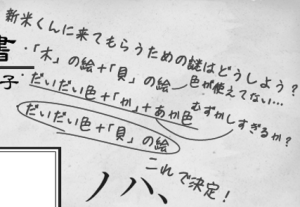 新米くんに来てもらうための謎はどうしよう？
書
・「木」の絵＋「貝」の絵
色が使えてない…
子
・だいだい色＋「か」＋あか色
むずかしすぎるか？
だいだい色＋「貝」の絵
これで決定！
ノハ、